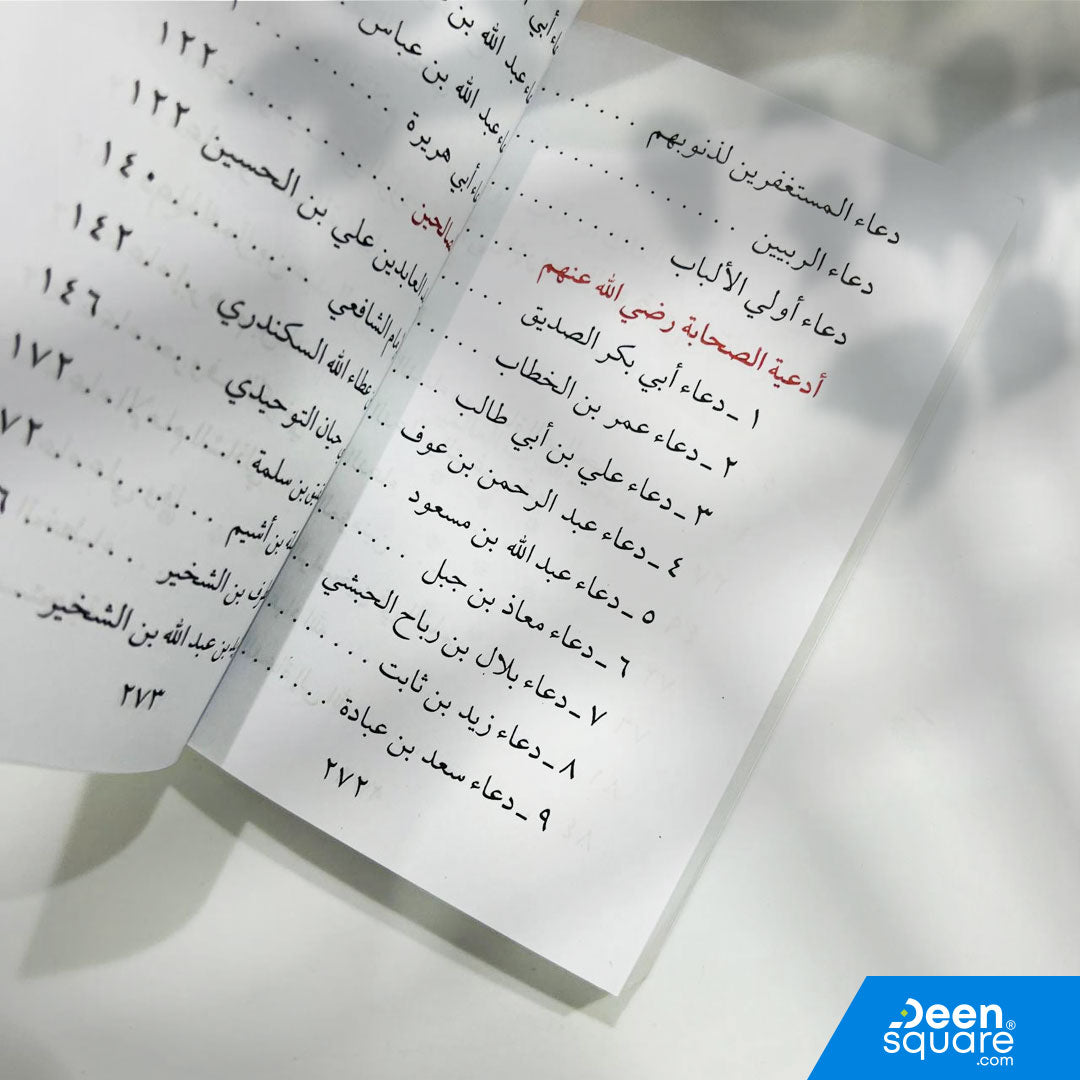 دعاء المستغفرين لذنوبهم . . . . . .
دعاء الربيين . . . . . . . . . . . . .
دعاء أولي الألباب . . . . . . . . . .
أدعية الصحابة رضي الله عنهم . . . .
١ ـ دعاء أبي بكر الصديق . . . . . .
٢ ـ دعاء عمر بن الخطاب . . . . .
٣ ـ دعاء علي بن أبي طالب . . . .
٤ ـ دعاء عبد الرحمن بن عوف . .
٥ ـ دعاء عبد الله بن مسعود . . . .
٦ ـ دعاء معاذ بن جبل . . . . . . .
٧ ـ دعاء بلال بن رباح الحبشي . .
٨ ـ دعاء زيد بن ثابت . . . . . . .
٩ ـ دعاء سعد بن عبادة . . . . . . .
٢٧٢
أبي
عبد الله بن
عبد الله بن عباس . . . . . .
أبي هريرة . . . . . . . . ١٢٢
. . . . . . . . ١٢٢
العابدين علي بن الحسين ١٢٢
الشافعي . . . . . . . . ١٤٠
عطاء الله السكندري . . . ١٤٢
حيان التوحيدي . . . . . ١٤٦
بن سلمة . . . . . . . . ١٧٢
بن أشيم . . . . . . . .
بن الشخير . . . . . .
بن عبد الله بن الشخير .
٢٧٣
Deen
square®
.com